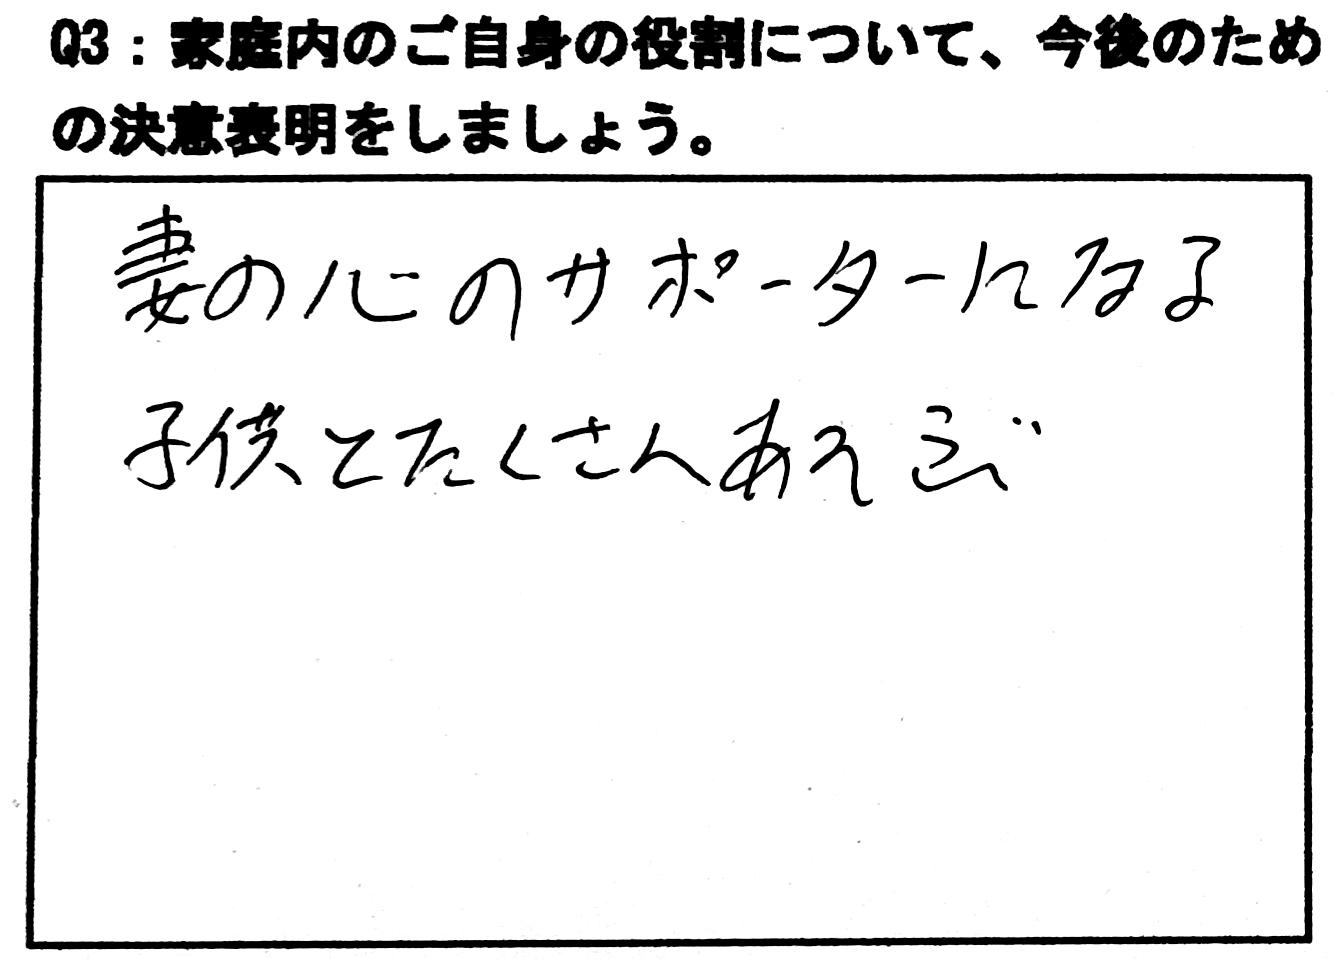 Q3：家庭内のご自身の役割について、今後のため
の決意表明をしましょう。
妻の心のサポーターになる
子供とたくさんあそぶ